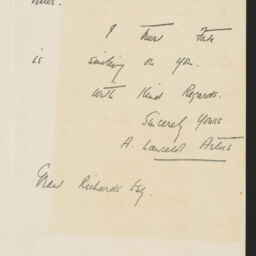 I trust Fate
is smiling on you.
With Kind Regards.
Sincerely Yours
A. Lancelot
Grant Richards Esq.